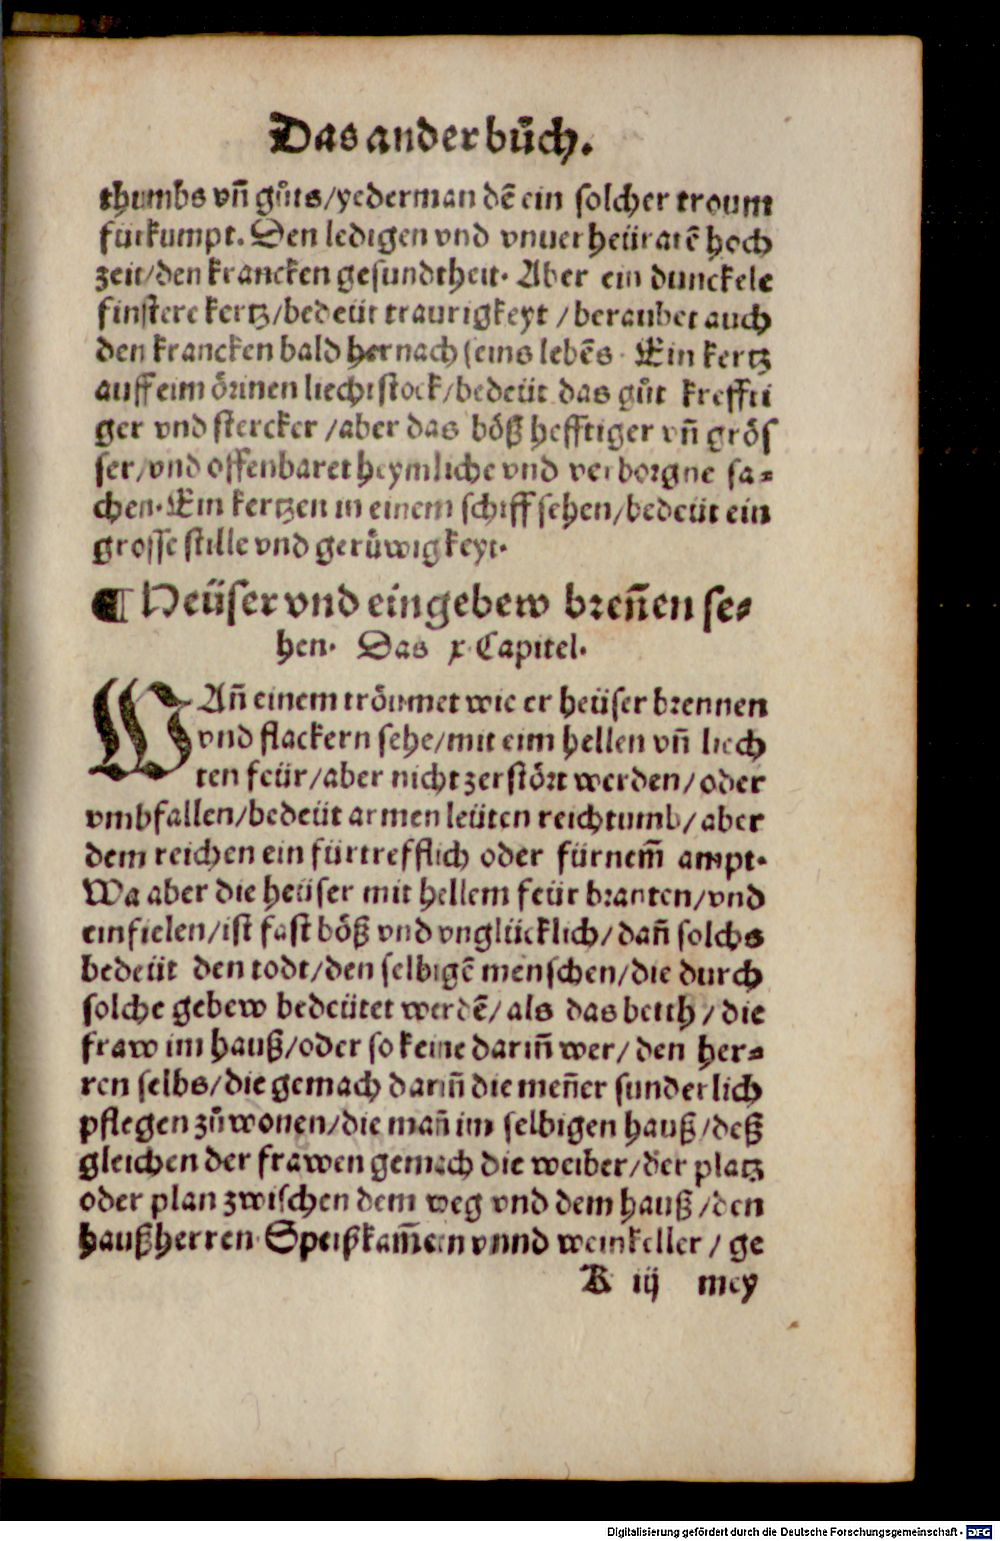 Das ander bůch.
thumbs vñ gůts/yederman dẽ ein solcher troum
fürkumpt. Den ledigen vnd vnuerheüratẽ hoch
zeit/den krancken gesundtheit. Aber ein dunckele
finstere kertz/bedeüt traurigkeyt/beraubet auch
den krancken bald hernach seins lebẽs. Ein kertz
auff eim örinen liechtstock/bedeüt das gůt kreffti
ger vnd stercker/aber das böß hefftiger vñ grös
ser/vnd offenbaret heymliche vnd verborgne sa-
chen. Ein kertzen in einem schiff sehen/bedeüt ein
grosse stille vnd gerůwigkeyt.
¶ Heüser vnd eingebew breñen se-
hen. Das x Capitel.
WAñ einem tröumet wie er heüser brennen
vnd flackern sehe/mit eim hellen vñ liech
ten feür/aber nicht zerstört werden/oder
vmbfallen/bedeüt armen leüten reichtumb/aber
dem reichen ein fürtrefflich oder fürnem̃ ampt.
Wa aber die heüser mit hellem feür branten/vnd
einfielen/ist fast böß vnd vnglücklich/dañ solchs
bedeüt den todt/den selbigẽ menschen/die durch
solche gebew bedeütet werdẽ/als das betth/die
fraw im hauß/oder so keine dariñ wer/den her-
ren selbs/die gemach dariñ die meñer sunderlich
pflegen zůwonen/die mañ im selbigen hauß/deß
gleichen der frawen gemach die weiber/der platz
oder plan zwischen dem weg vnd dem hauß/den
haußherren. Speißkam̃ern vnnd weinkeller/ge
K iij mey
Digitalisierung gefördert durch die Deutsche Forschungsgemeinschaft - DFG